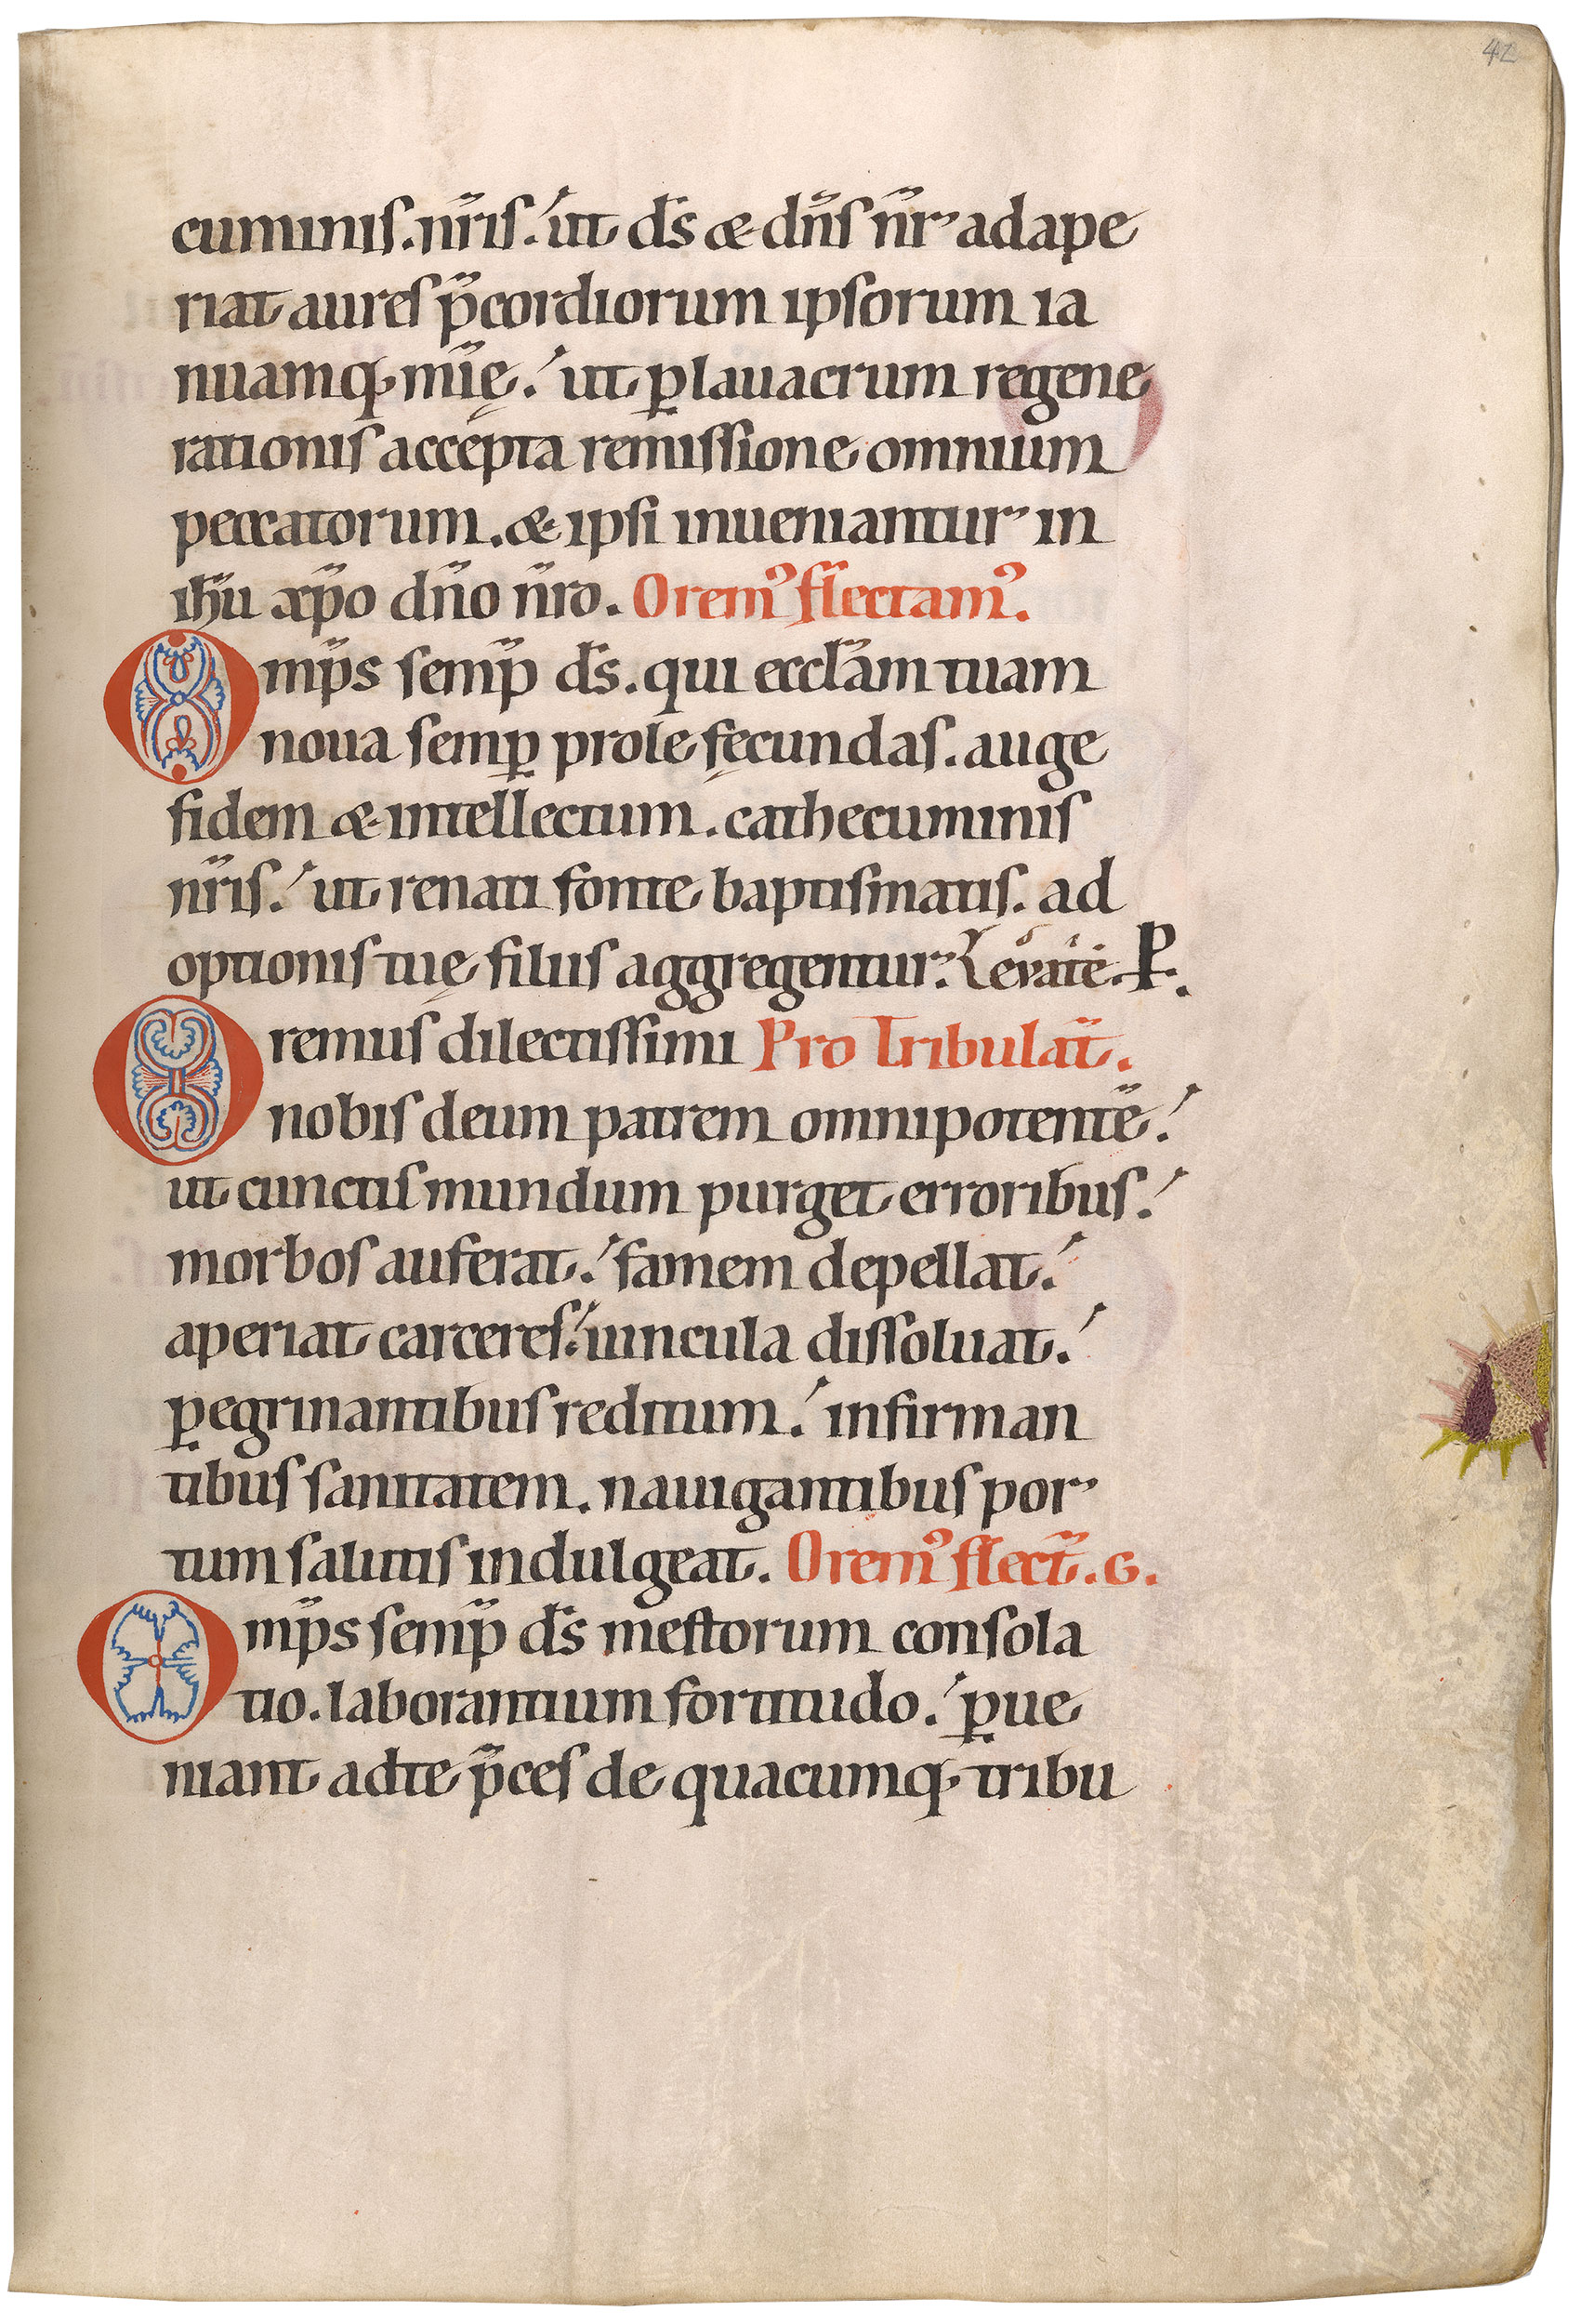 42
cuminis. nr̄is. ut ds̄ & dn̄s nr̄ adape
riat aures p̄cordiorum ipsorum ia
nuamq; mīę. ut ꝑ lauacrum regene
rationis accepta remissione omnium
peccatorum. & ipsi inueniantur in
ihū xp̄o dn̄o nr̄o. Oremꝰ flectamꝰ.
Omp̄s semp̄ ds̄. qui eccl̄am tuam
noua semꝑ prole fęcundas. auge
fidem & intellectum. cathecuminis
nr̄is. ut renati fonte baptismatis. ad
optionis tuę filiis aggregentur. Levate. P.
Oremus dilectissimi Pro Tribulat̄.
nobis deum patrem omnipotentē.
ut cunctis mundum purget erroribus.
morbos auferat. famem depellat.
aperiat carceres. uincula dissoluat.
ꝑegrinantibus reditum. infirman
tibus sanitatem. nauigantibus por
tum salutis indulgeat. Oremꝰ flect̄. G.
Omp̄s semp̄ ds̄ mestorum consola
tio. laborantium fortitudo. ꝑue
niant ad te p̄ces de quacumq; tribu